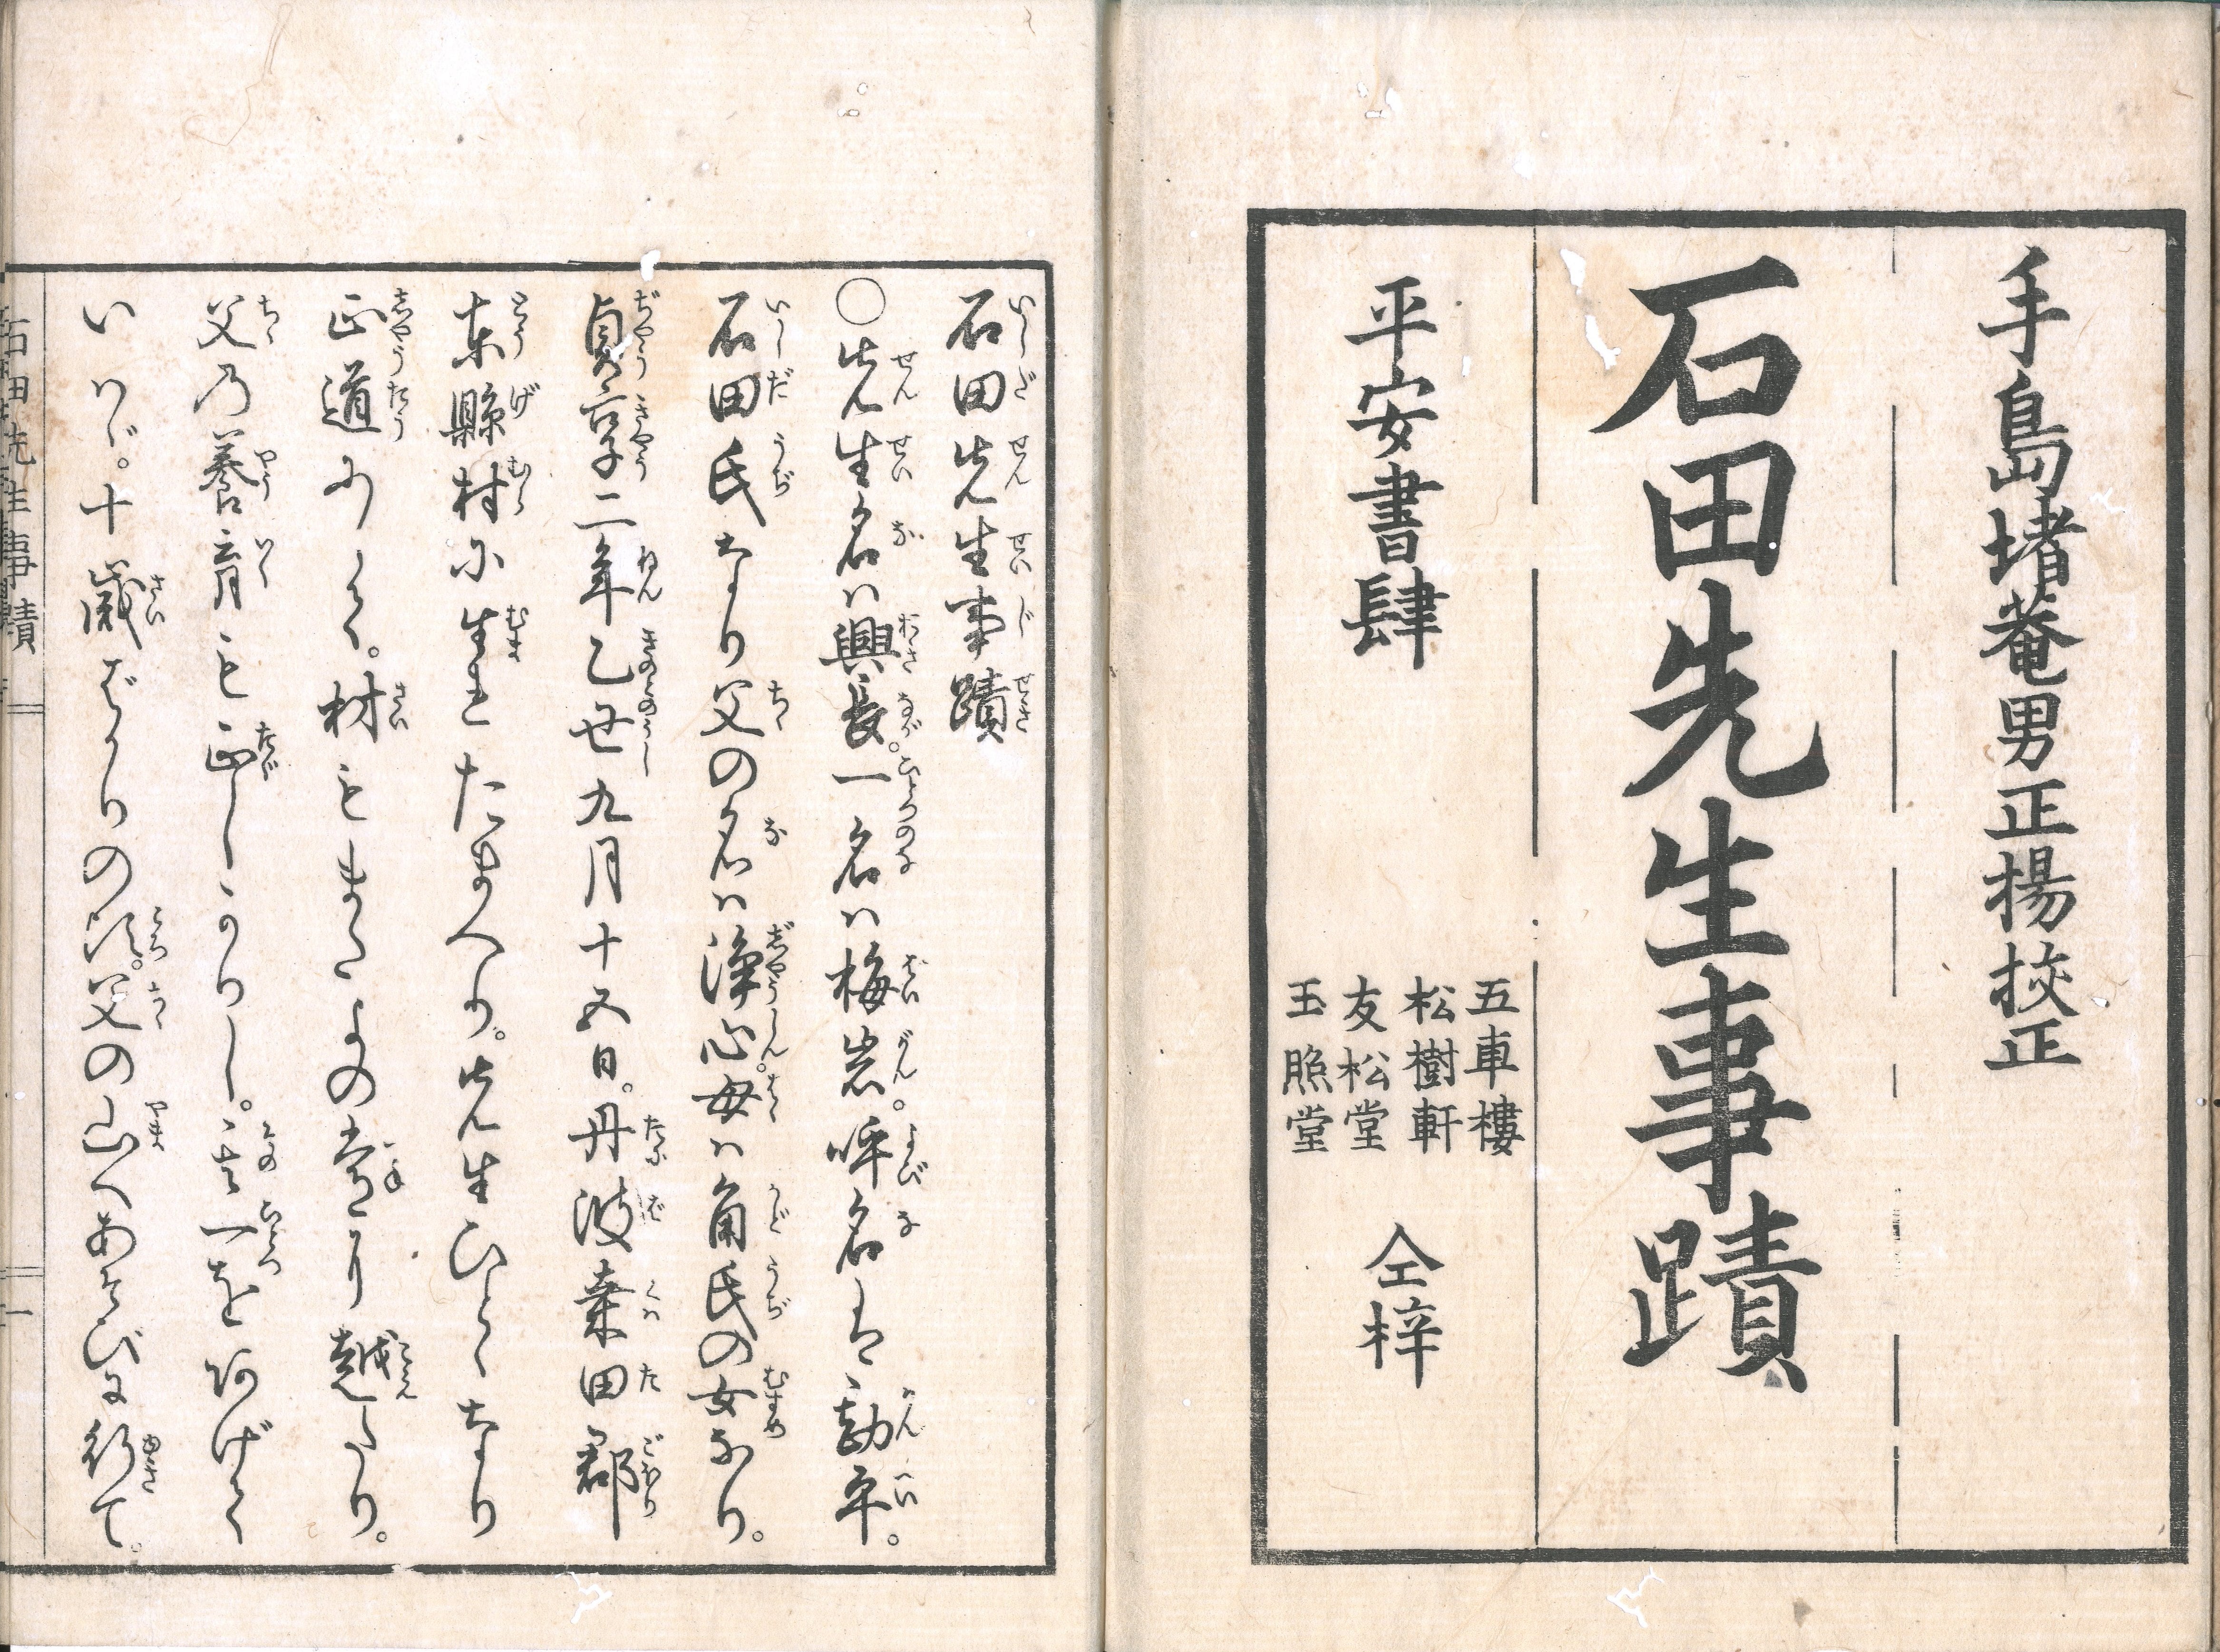 手島堵菴男正揚挍正
石田先生事蹟
平安書肆
五車樓
松樹軒
友松堂
玉照堂
仝梓
石田先生事蹟
○先生名ハ興長。一名ハ梅岩。呼名は勘平。
石田氏なり父の名ハ浄心。母ハ角氏の女なり。
貞享二年乙丑九月十五日。丹波桒田郡
東縣村に生れたまへり。先生ひとゝなり
正道にして。材もまたよの常に越たり。
父の養育も正しかりし。其一を阿げて
いはゞ。十歳ばかりの比。父の山へあそびに行て。
石田先生事蹟 一